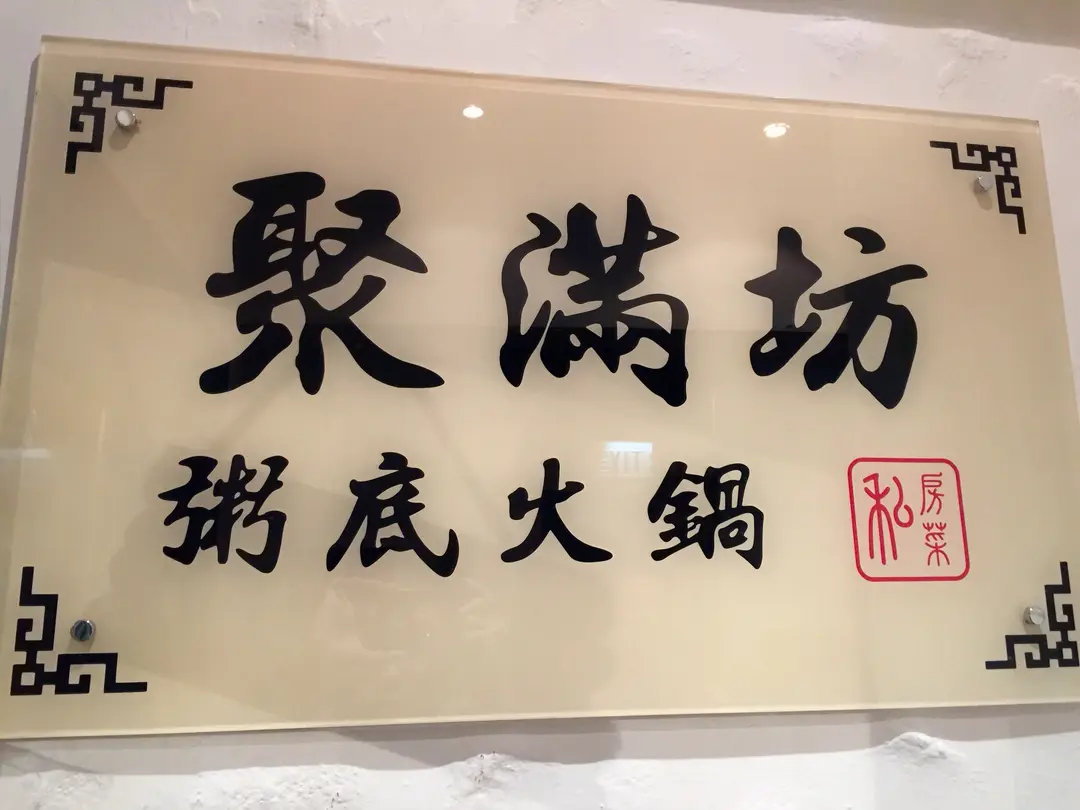 聚滿坊
粥底火鍋
私房菜